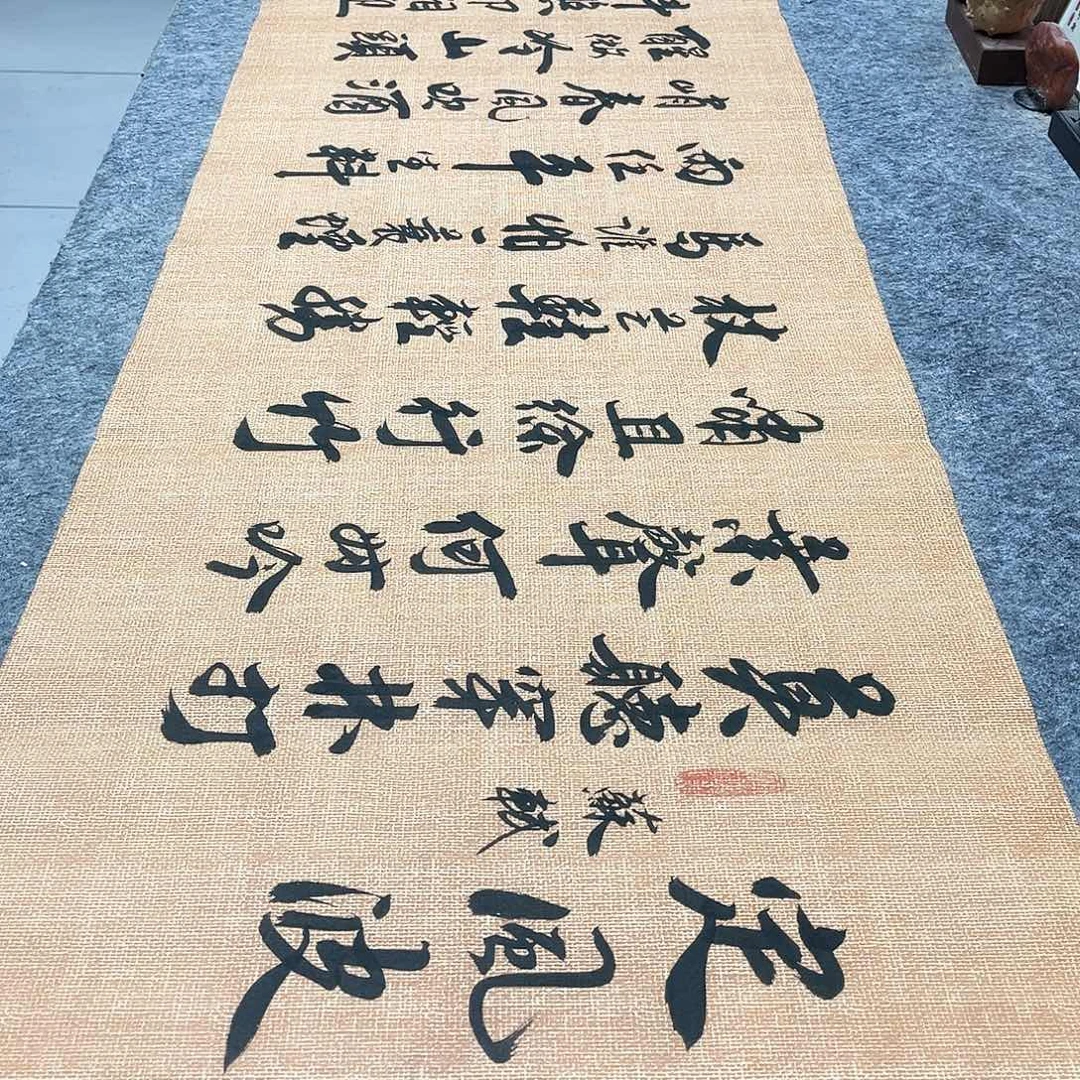 定風波
蘇軾
莫聽穿林打
葉聲何妨吟
嘯且徐行竹
杖芒鞋輕勝
馬誰怕一蓑煙
雨任平生料
峭春風吹酒
醒微冷山頭
斜照卻相迎